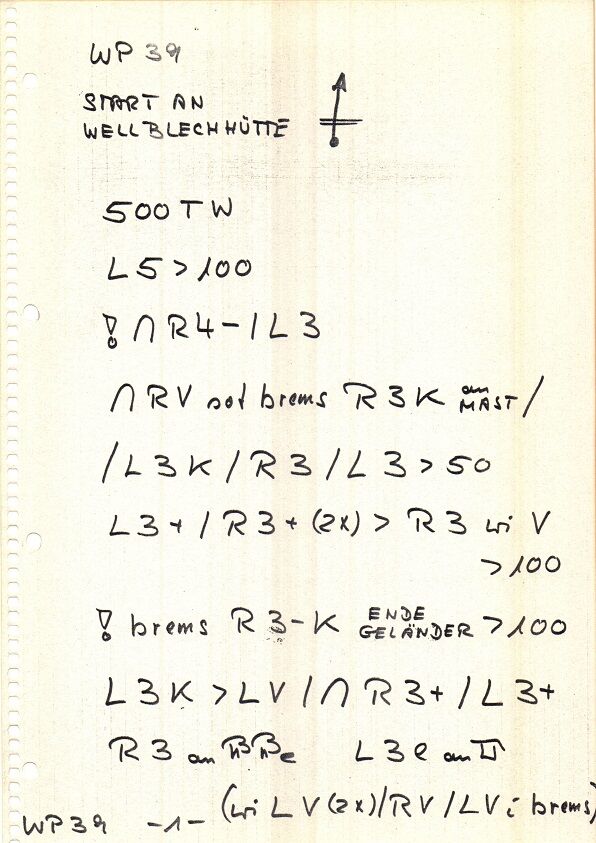 WP 39
START AN
WELLBLECHHÜTTE
500 TW
L5 > 100
! ∩ R4 - / L3
∩ RV sot brems R3K am MAST /
/ L3K / R3 / L3 > 50
L3+ / R3+ (2x) > R3 wi V
> 100
! brems R3-K ENDE GELÄNDER > 100
L3K > LV / ∩ R3+ / L3+
R3 an L3l an
(wi LV (2x) / RV / LV i brems)
WP 39 -1-